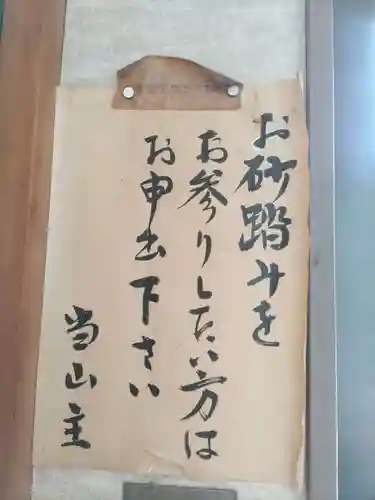 お砂踏みを
お参りしたい方は
お申出下さい
当山主